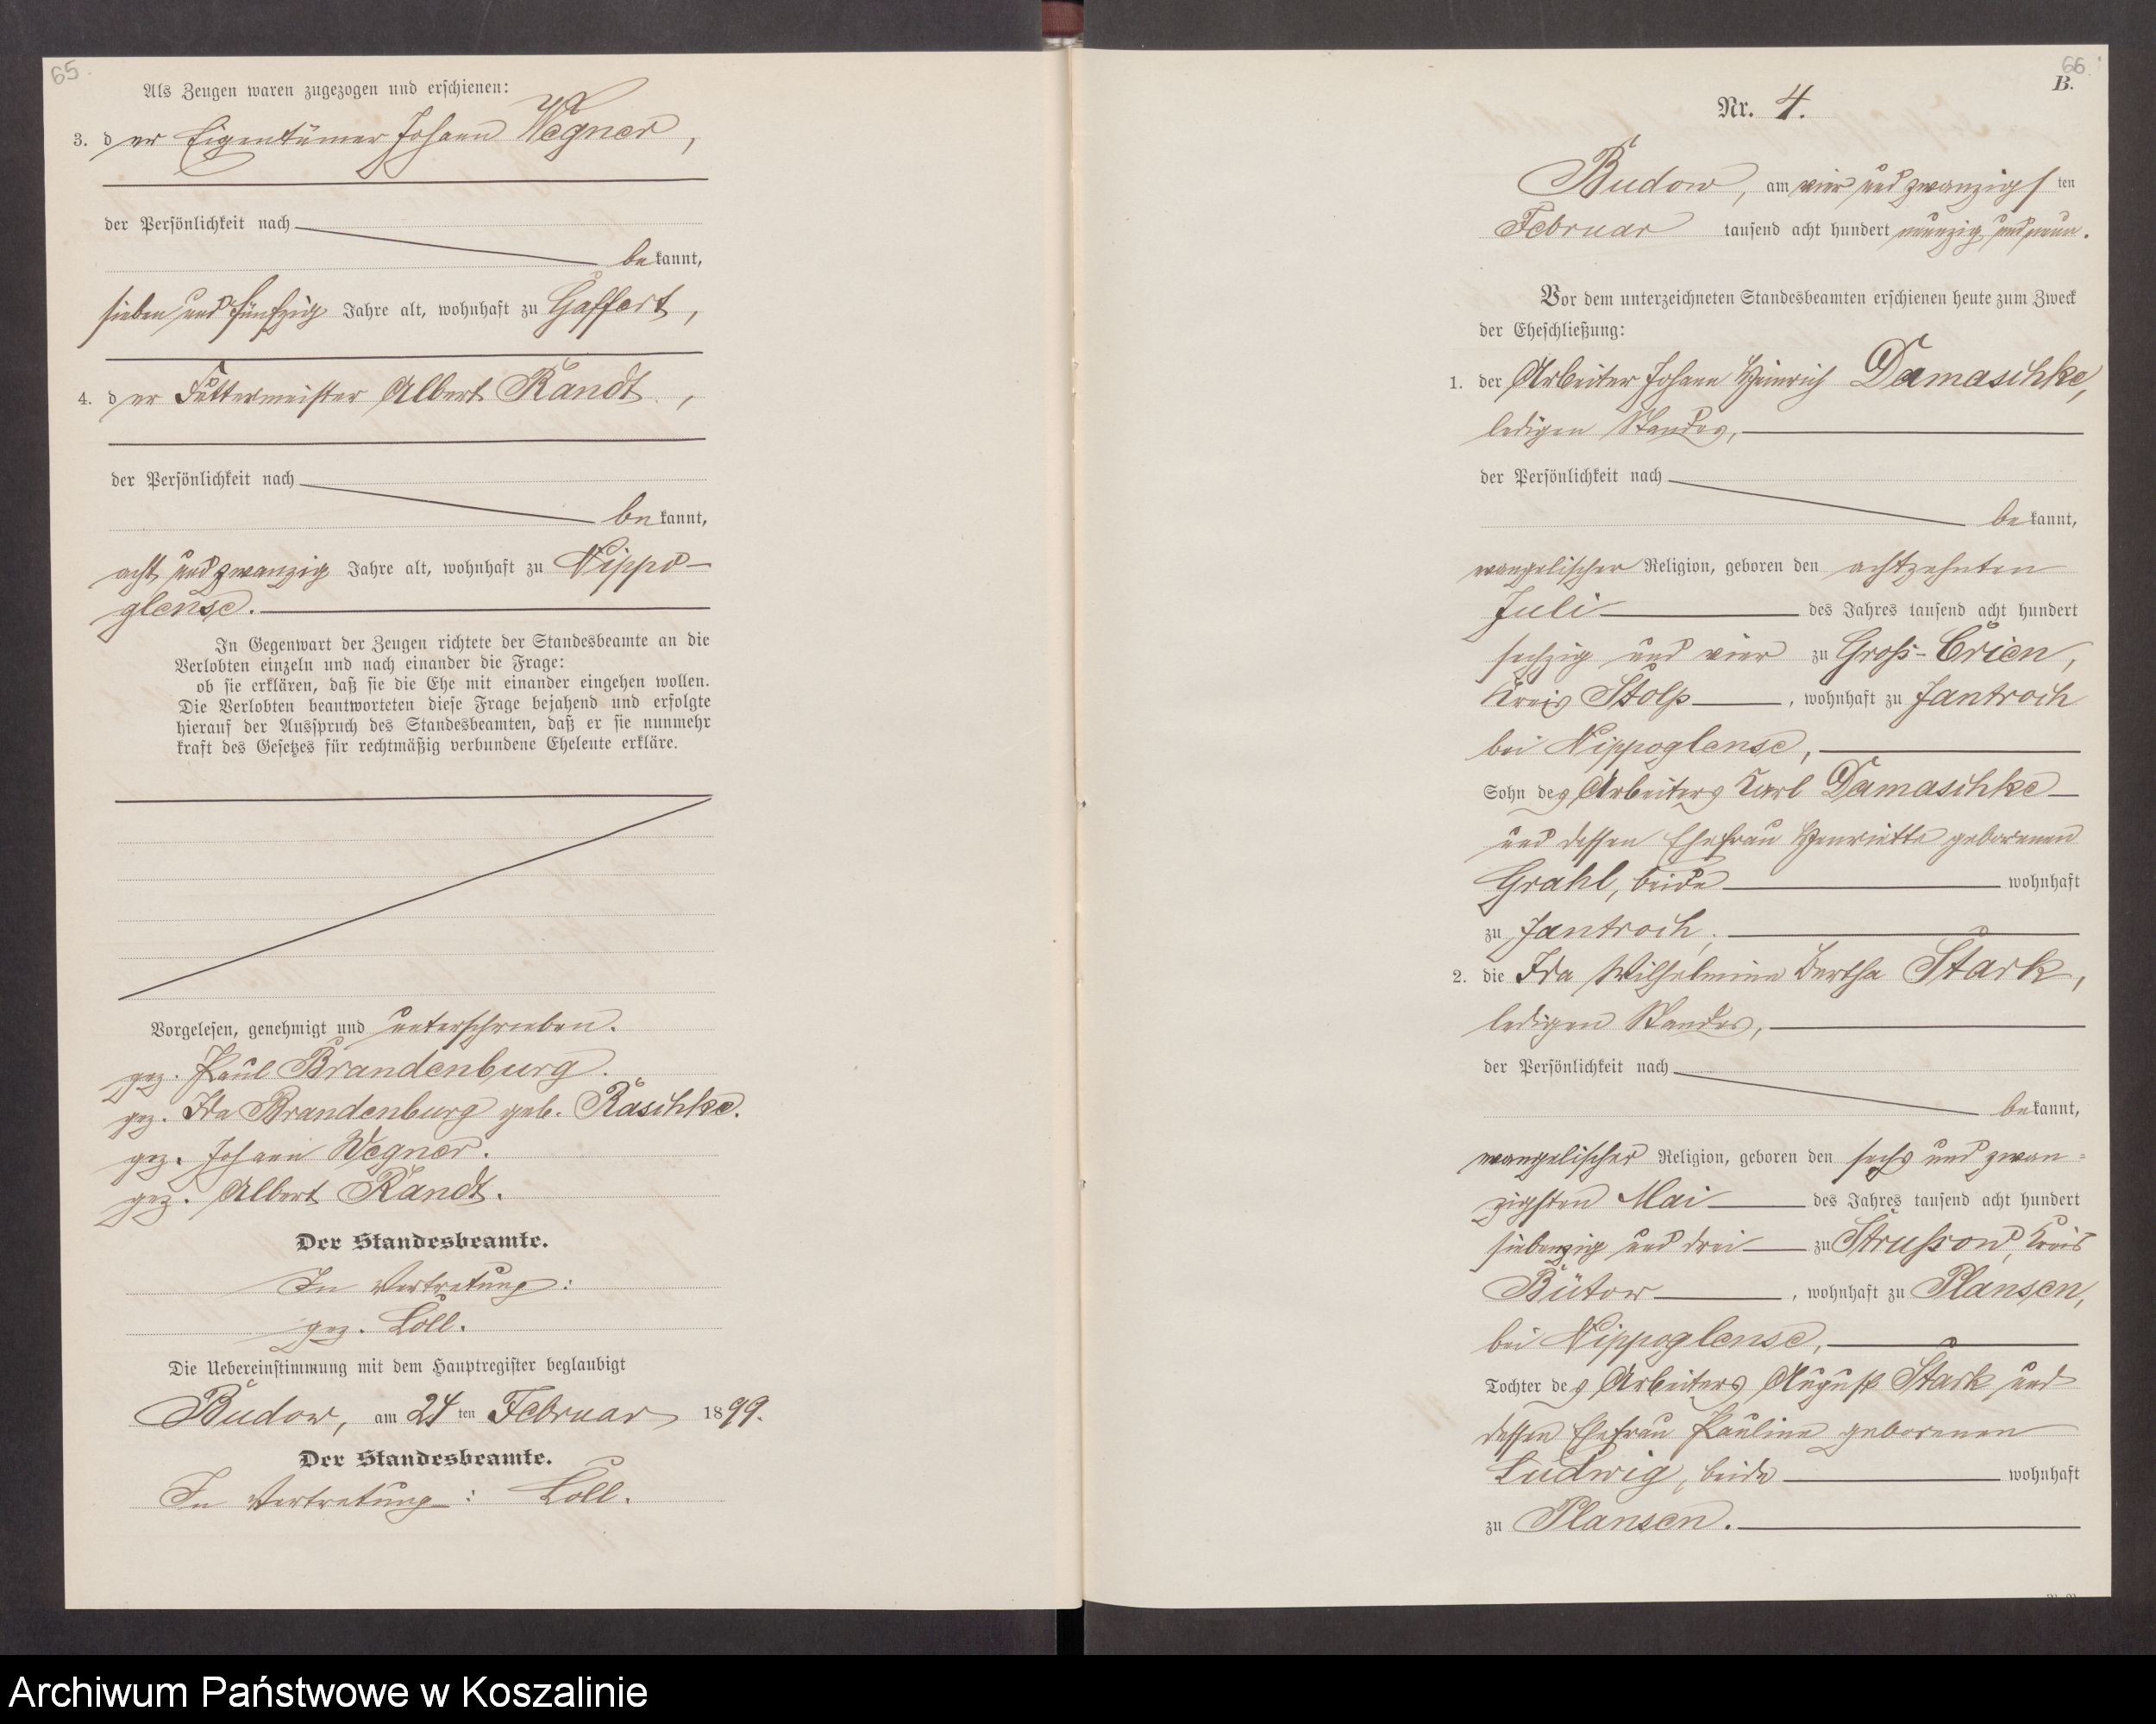 65.
Als Zeugen waren zugezogen und erschienen:
3. der Eigentümer Johann Wegner,
der Persönlichkeit nach
bekannt,
sieben und fünfzig Jahre alt, wohnhaft zu Gaffert,
4. der Futtermeister Albert Randt,
der Persönlichkeit nach
bekannt,
acht und zwanzig Jahre alt, wohnhaft zu Nippo-
glense.
In Gegenwart der Zeugen richtete der Standesbeamte an die
Verlobten einzeln und nach einander die Frage:
ob sie erklären, daß sie die Ehe mit einander eingehen wollen.
Die Verlobten beantworteten diese Frage bejahend und erfolgte
hierauf der Ausspruch des Standesbeamten, daß er sie nunmehr
kraft des Gesetzes für rechtmäßig verbundene Eheleute erkläre.
Vorgelesen, genehmigt und unterschrieben.
gez. Paul Brandenburg.
gez. Ida Brandenburg geb. Raschke.
gez. Johann Wegner.
gez. Albert Randt.
Der Standesbeamte.
In Vertretung:
gez. Loll.
Die Uebereinstimmung mit dem Hauptregister beglaubigt
Budow, am 24ten Februar 1899.
Der Standesbeamte.
In Vertretung: Loll.
66.
B.
Nr. 4.
Budow, am vier und zwanzigsten
Februar tausend acht hundert neunzig und neun.
Vor dem unterzeichneten Standesbeamten erschienen heute zum Zweck
der Eheschließung:
1. der Arbeiter Johann Heinrich Damaschke,
ledigen Standes,
der Persönlichkeit nach
bekannt,
evangelischer Religion, geboren den achtzehnten
Juli des Jahres tausend acht hundert
sechzig und vier zu Groß-Crien,
Kreis Stolp, wohnhaft zu Jantroch
bei Nippoglense,
Sohn des Arbeiters Karl Damaschke
und dessen Ehefrau Henriette geborenen
Grahl, beide wohnhaft
zu Jantroch;
2. die Ida Wilhelmine Bertha Stark,
ledigen Standes,
der Persönlichkeit nach
bekannt,
evangelischer Religion, geboren den sechs und zwan-
zigsten Mai des Jahres tausend acht hundert
siebenzig und drei zu Strussow, Kreis
Bütow, wohnhaft zu Plansen,
bei Nippoglense,
Tochter des Arbeiters August Stark und
dessen Ehefrau Pauline geborenen
Ludwig, beide wohnhaft
zu Plansen.
Archiwum Państwowe w Koszalinie